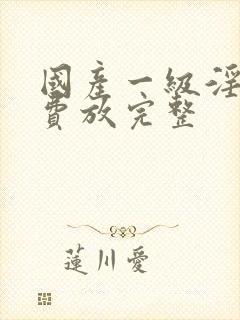 國產一級淫
費放完整
蓮川愛